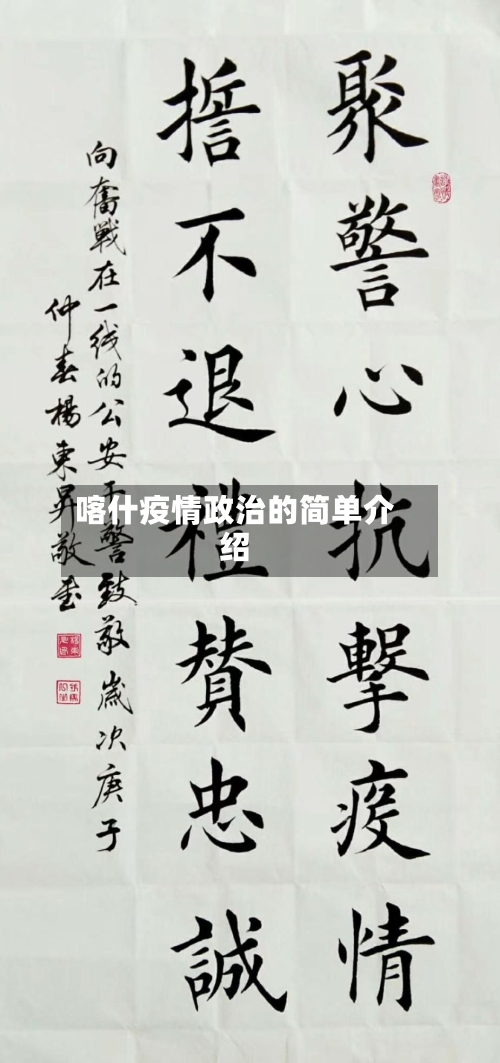 聚警心抗擊疫情
誓不退禮贊忠誠
向奮戰在一线的公安干警致敬 歲次庚子
仲春楊東昇敬書
喀什疫情政治的简单介
绍